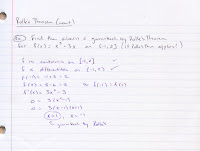 Rolle's Theorem (cont)
Ex. Find the values c guaranteed by Rolle's Theorem
for f(x) = x³ - 3x on [-1, 2] (if Rolle's Thm applies!)
f is continuous on [-1, 2] ✓
f is differentiable on (-1, 2) ✓
f(-1) = -1 + 3 = 2
f(2) = 8 - 6 = 2 so f(-1) = f(2)
f'(x) = 3x² - 3
0 = 3(x² - 1)
0 = 3(x-1)(x+1)
x = 1, x = -1
guaranteed by Rolle's